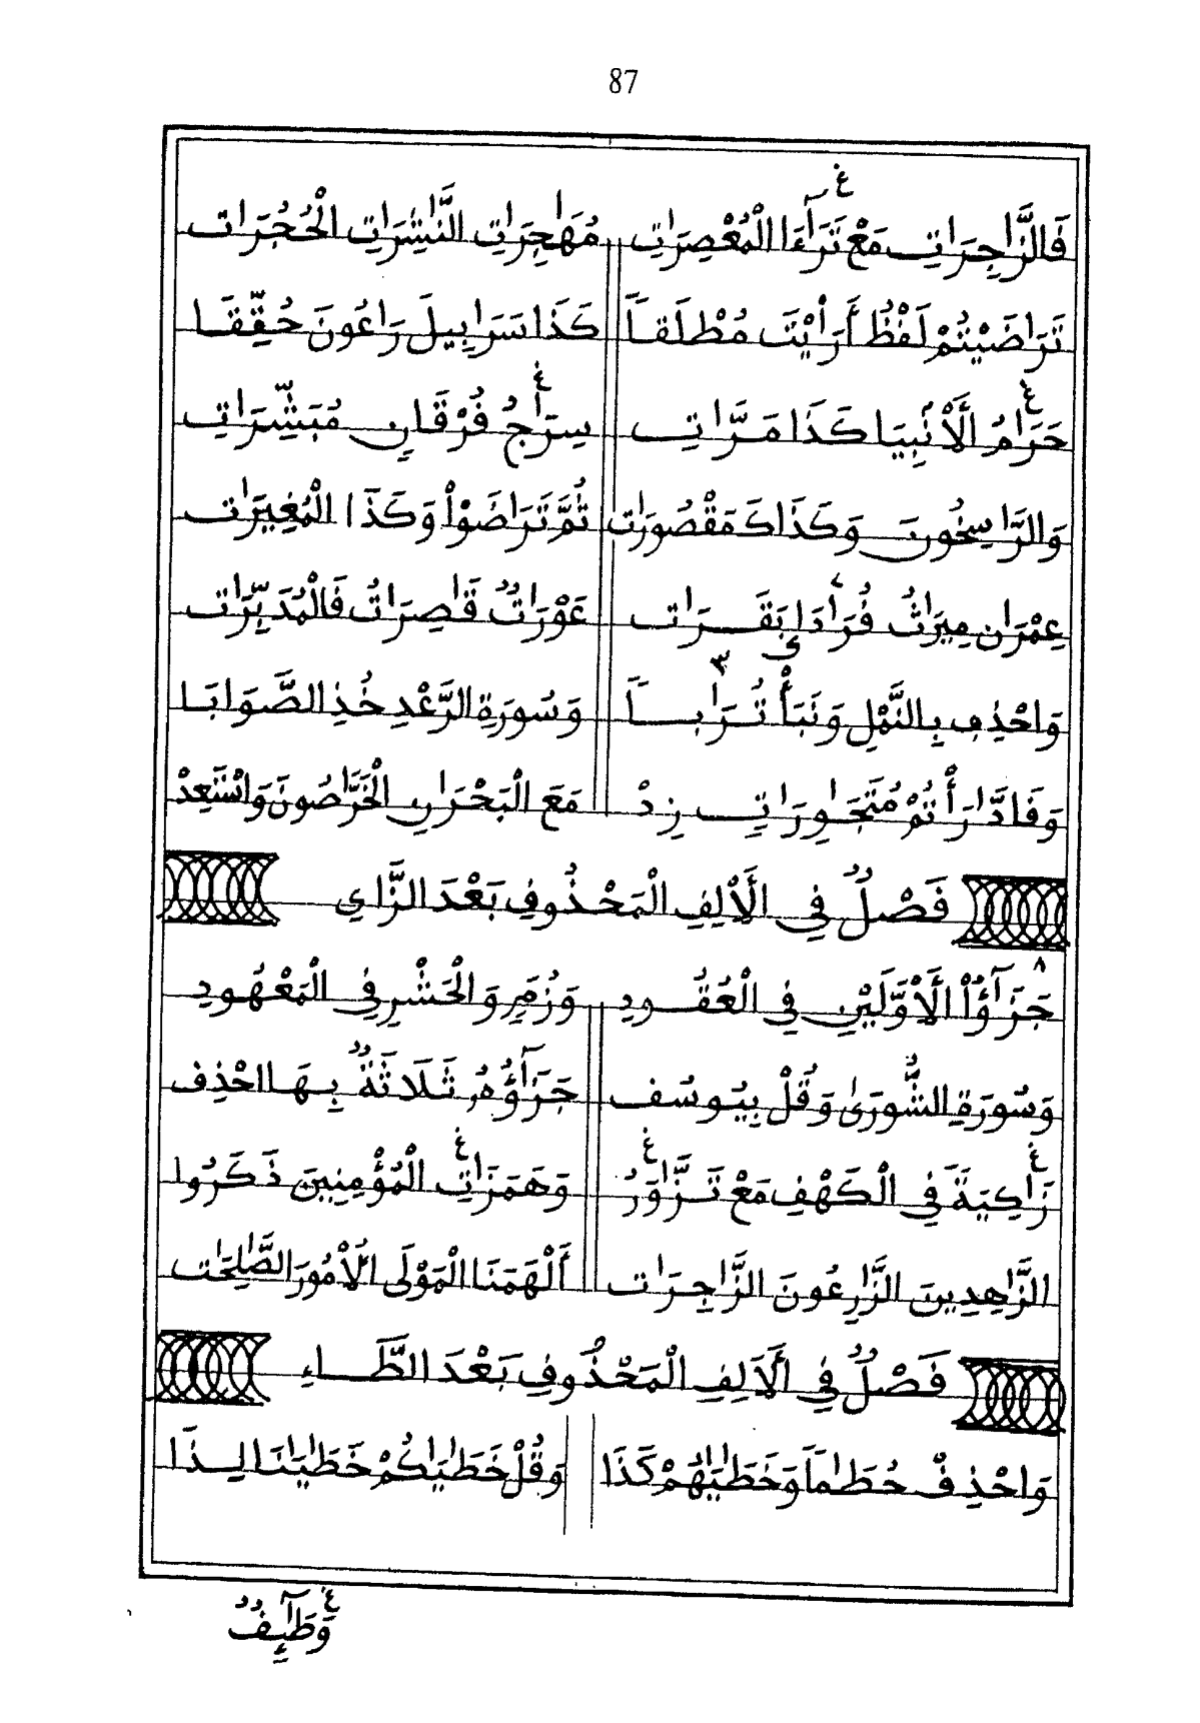 87
فَالزَّاجِرَاتِ مَعْ تَرَآءَا الْمُعْصِرَاتِ مُهَاجِرَاتِ النَّاشِرَاتِ الْحُجُرَات
تَرَاضَيْتُمْ لَفْظُ أَرَأَيْتَ مُطْلَقاً كَذَا سَرَابِيلَ رَاعُونَ حُقِّقَا
حَرَامُ الْأَنْبِيَا كَذَا مَرَّاتِ سِرَاجُ فُرْقَانٍ مُبَشِّرَاتِ
وَالرَّاسِخُونَ وَكَذَاكَ مَقْصُورَات ثُمَّ تَرَاضَوْاْ وَكَذَا الْمُغِيرَات
عِمْرَان مِيرَاثُ فُرَادَىٰ بَقَرَات عَوْرَاتٌ قَاصِرَاتُ فَالْمُدَبِّرَات
وَاحْذِف بِالنَّمْلِ وَنَبَأْ تُرَاباً وَسُورَةِ الرَّعْدِ خُذِ الصَّوَابَا
وَفَادَّارَأْتُمْ مُتَجَاوِرَاتٍ زِدْ مَعَ الْبَحْرَانِ الْخَرَّاصُونَ وَاسْتَعِدْ
فَصْلٌ فِي الْأَلِفِ الْمَحْذُوفِ بَعْدَ الزَّايِ
جَزَآؤُاْ الْأَوَّلَيْنِ فِي الْعُقُودِ وَزُمَرٍ وَالْحَشْرِ فِي الْمَعْهُودِ
وَسُورَةِ الشُّورَىٰ وَقُلْ بِيُوسُف جَزَآؤُهُ ثَلَاثَةٌ بِهَا احْذِف
زَاكِيَةَ فِي الْكَهْفِ مَعْ تَزَّاوَرُ وَهَمَزَاتِ الْمُؤْمِنِينَ ذَكَرُوا
الزَّاهِدِينَ الزَّارِعُونَ الزَّاجِرَات أَلْهَمَنَا الْمَوْلَى الْأُمُورَ الصَّالِحَات
فَصْلٌ فِي الْأَلِفِ الْمَحْذُوفِ بَعْدَ الطَّاءِ
وَاحْذِفْ حُطَاماً وَخَطَايَاهُمْ كَذَا وَقُلْ خَطَايَاكُمْ خَطَايَانَا لِذَا
وَطَآئِفٌ